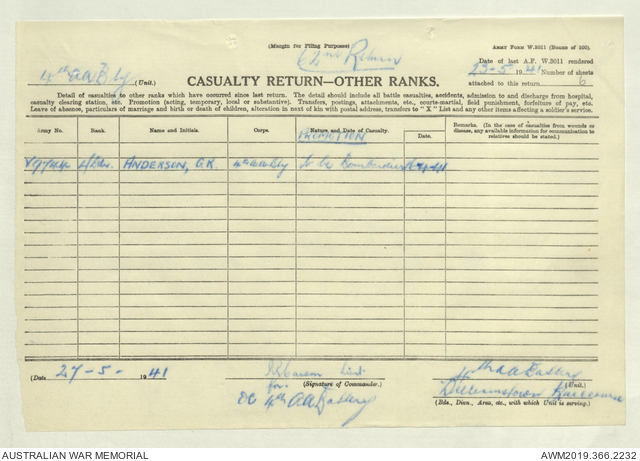 (Margin for Filing Purposes)
ARMY FORM W.3011 (Boxes of 100).
(2nd Return
Date of last A.F. W.3011 rendered
4th AA Bty (Unit.)
23-5 1941 Number of sheets
CASUALTY RETURN—OTHER RANKS.
attached to this return 6
Detail of casualties to other ranks which have occurred since last return. The detail should include all battle casualties, accidents, admission to and discharge from hospital,
casualty clearing station, etc. Promotion (acting, temporary, local or substantive). Transfers, postings, attachments, etc., courts-martial, field punishment, forfeiture of pay, etc.
Leave of absence, particulars of marriage and birth or death of children, alteration in next of kin with postal address, transfers to "X" List and any other items affecting a soldier's service.
Army No.
Rank.
Name and Initials.
Corps.
Nature and Date of Casualty.
Date.
Remarks. (In the case of casualties from wounds or
disease, any available information for communication to
relatives should be stated.)
PROMOTION
ANDERSON, G.K. 4th AA Bty to be Bombardier
(Date 27-5- 1941
Lieut
for
(Signature of Commander.)
OC 4th AA Battery
4th AA Battery
(Unit.)
Williamstown Racecourse
(Bde., Divn., Area, etc., with which Unit is serving.)
AUSTRALIAN WAR MEMORIAL
AWM2019.366.2232